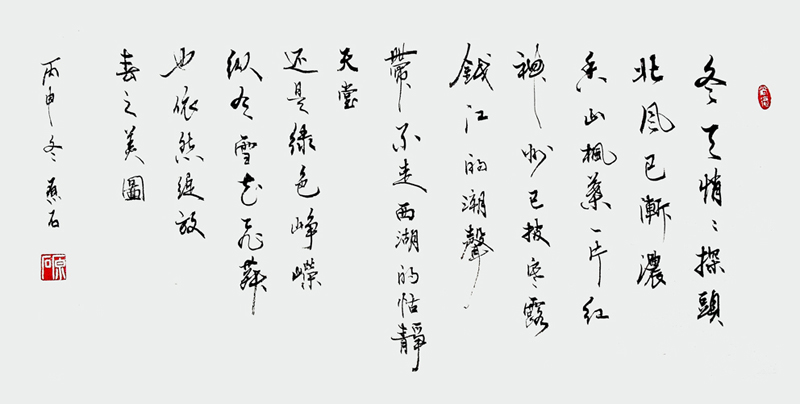 冬天悄悄探頭
北風已漸濃
香山楓葉一片紅
神州已披寒露
錢江的潮聲
帶不走西湖的恬靜
天堂
还是绿色峥嶸
纵有雪花飛舞
也依然綻放
春之美圖
丙申冬石
原石